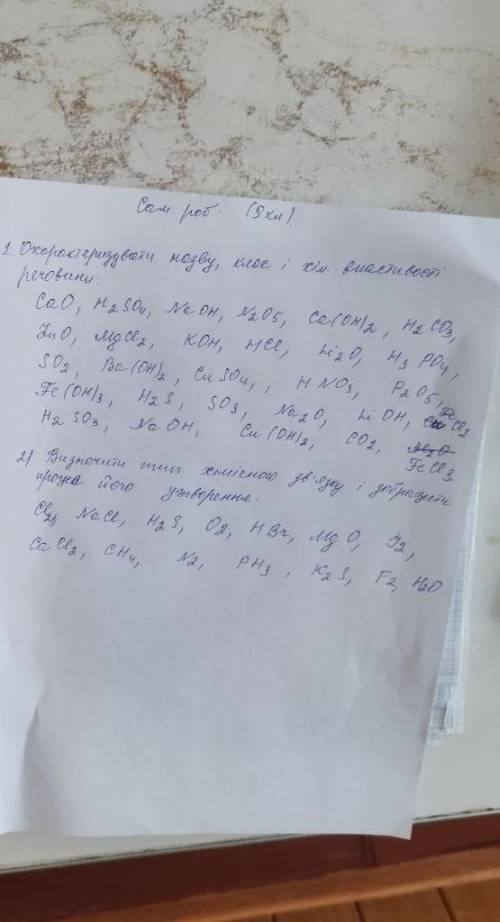 Сам. роб. (9 кл).
1. Охарактеризувати назву, клас і хім. властивості
речовини:
CaO, H2SO4, NaOH, N2O5, Ca(OH)2, H2CO3,
ZnO, MgCl2, KOH, HCl, Li2O, H3PO4,
SO2, Ba(OH)2, CuSO4, HNO3, P2O5, FeCl2
Fe(OH)3, H2S, SO3, Na2O, LiOH,
H2SO3, NaOH, Cu(OH)2, CO2, FeCl3
2) Визначити тип хімісного зв'язку і зобразити
його утворення:
Cl2, NaCl, H2S, O2, HBr, MgO, I2,
CaCl2, CH4, N2, PH3, K2S, F2, H2O